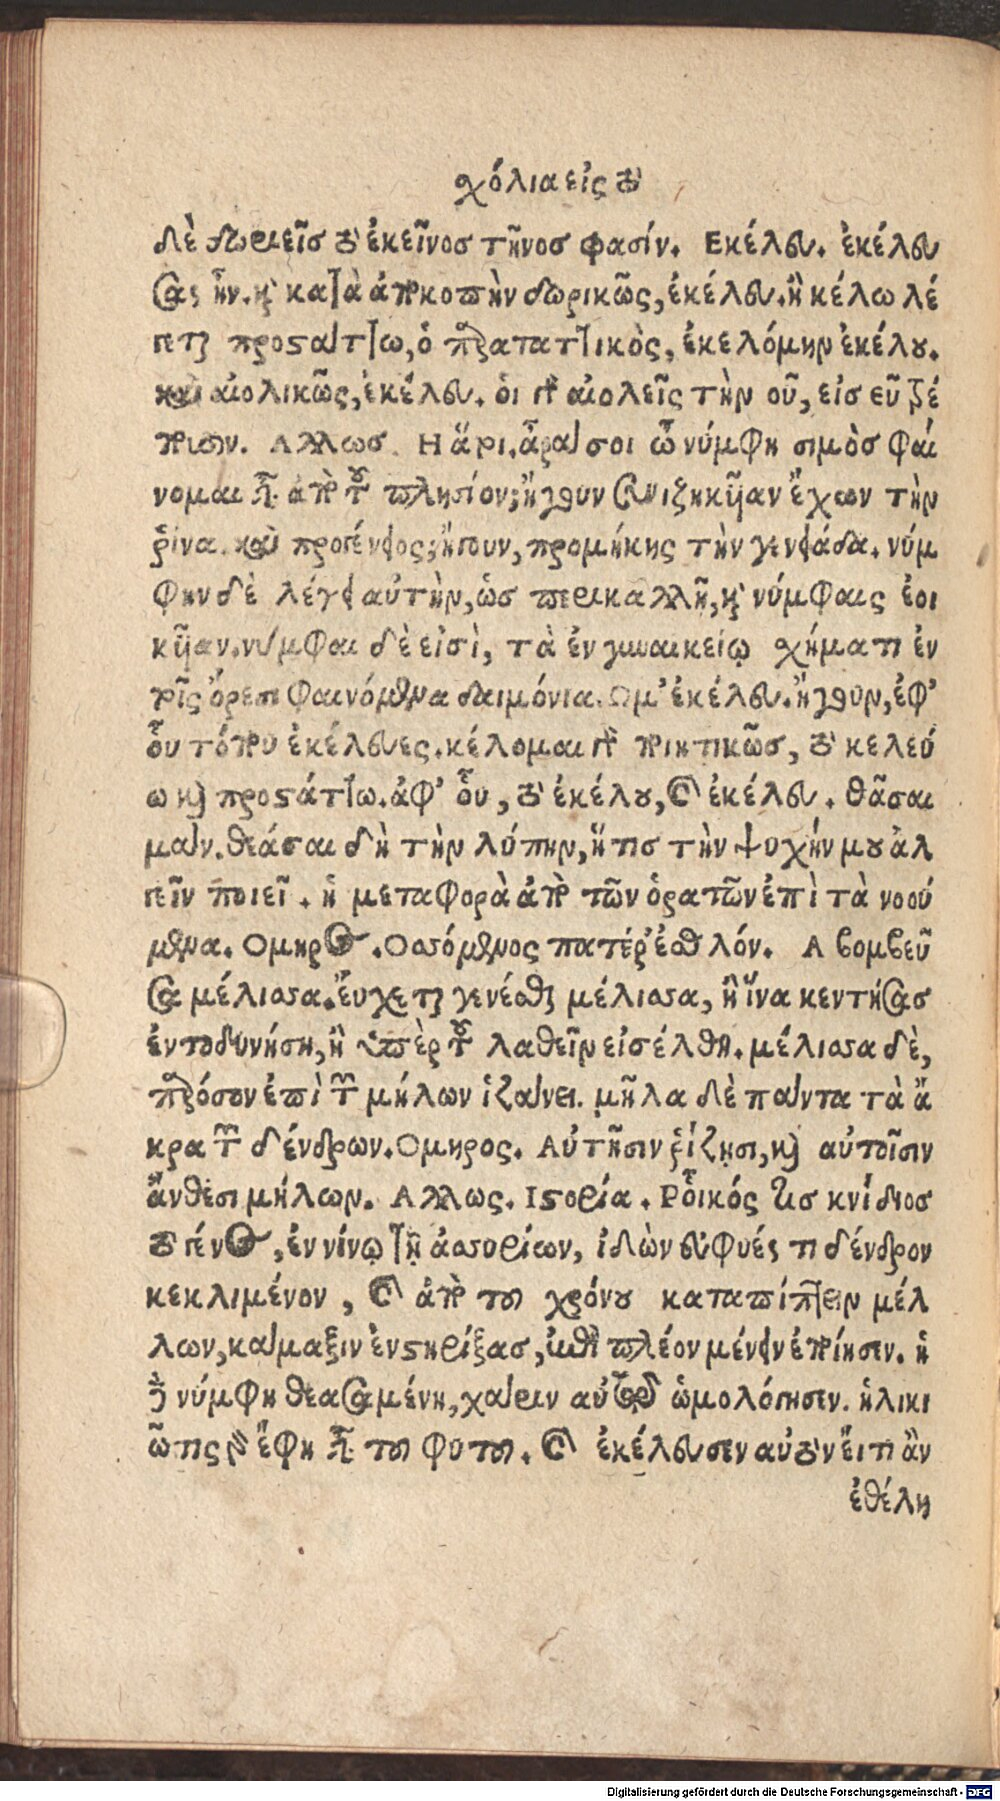 σχόλια εἰς τὸ
δὲ δωριεῖσ τὸ ἐκεῖνοσ τῆνοσ φασίν. Εκέλευ. ἐκέλευ
σας ἦν. καὶ κατὰ ἀποκοπὴν δωρικῶς, ἐκέλευ. ἢ κέλω λέ
γεται προσάττω, ὁ παρατατικὸς, ἐκελόμην ἐκέλου.
καὶ αἰολικῶς, ἐκέλευ. ὁι γὰρ αἰολεῖς τὴν οῦ, εἰσ εῦ τρέ
πουσιν. Αλλωσ. Η ἄρι. ἆρα σοι ὦ νύμφη σιμὸσ φαί
νομαι εἶναι ἀπὸ τοῦ πλησίον; ἤγουν ἀνιζηκῦιαν ἔχων τὴν
ῥίνα. καὶ προγένειος; ἤγουν, προμήκης τὴν γενειάδα. νύμ
φην δὲ λέγει αὐτὴν, ὡσ περικαλλῆ, καὶ νύμφαις ἐοι
κῦιαν. νύμφαι δὲ εἰσὶ, τὰ ἐν γυναικείῳ σχήματι ἐν
τοῖς ὄρεσι φαινόμενα δαιμόνια. Ωμ' ἐκέλευ. ἤγουν, ἐφ'
οὗ τόπου ἐκέλευες. κέλομαι γὰρ ποιητικῶσ, τὸ κελεύ
ω καὶ προστάττω. ἀφ' οὗ, τὸ ἐκέλου, καὶ ἐκέλευ. θᾶσαι
μάν. θεάσαι δὴ τὴν λύπην, ἥτισ τὴν ψυχήν μου ἀλ
γεῖν ποιεῖ. ἡ μεταφορὰ ἀπὸ τῶν ὁρατῶν ἐπὶ τὰ νοού
μενα. Ομηρος. Οσσόμενος πατέρ' ἐσθλόν. Α βομβεῦ
σα μέλισσα. ἔυχεται γενέσθαι μέλισσα, ἢ ἵνα κεντήσασ
ἐντοδυνήσῃ, ἢ ὑπὲρ τοῦ λαθεῖν εἰσέλθῃ. μέλισσα δὲ,
παρόσον ἐπὶ τῶν μήλων ἱζάνει. μῆλα δὲ πάντα τὰ ἄ
κρα τῶν δένδρων. Ομηρος. Αὐτῆσιν ῥίζῃσι, καὶ αὐτοῖσιν
ἄνθεσι μήλων. Αλλως. Ιστορία. Ροῖκός τισ κνίδιοσ
τὸ γένος, ἐν νίνῳ τῇ ἀσσυρίων, ἰδὼν εὐφυές τι δένδρον
κεκλιμένον, καὶ ἀπὸ του χρόνου καταπίπτειν μέλ
λων, κάμαξιν ἐνστηρίξασ, ἐπὶ πλέον μένειν ἐποίησεν. ἡ
δὲ νύμφη θεασαμένη, χάριν αὐτῷ ὡμολόγησεν. ἡλικι
ῶτις γὰρ ἔφη εἶναι του φυτου. καὶ ἐκέλευσεν αὐτὸν ἔιτι ἂν
ἐθέλῃ
Digitalisierung gefördert durch die Deutsche Forschungsgemeinschaft - DFG